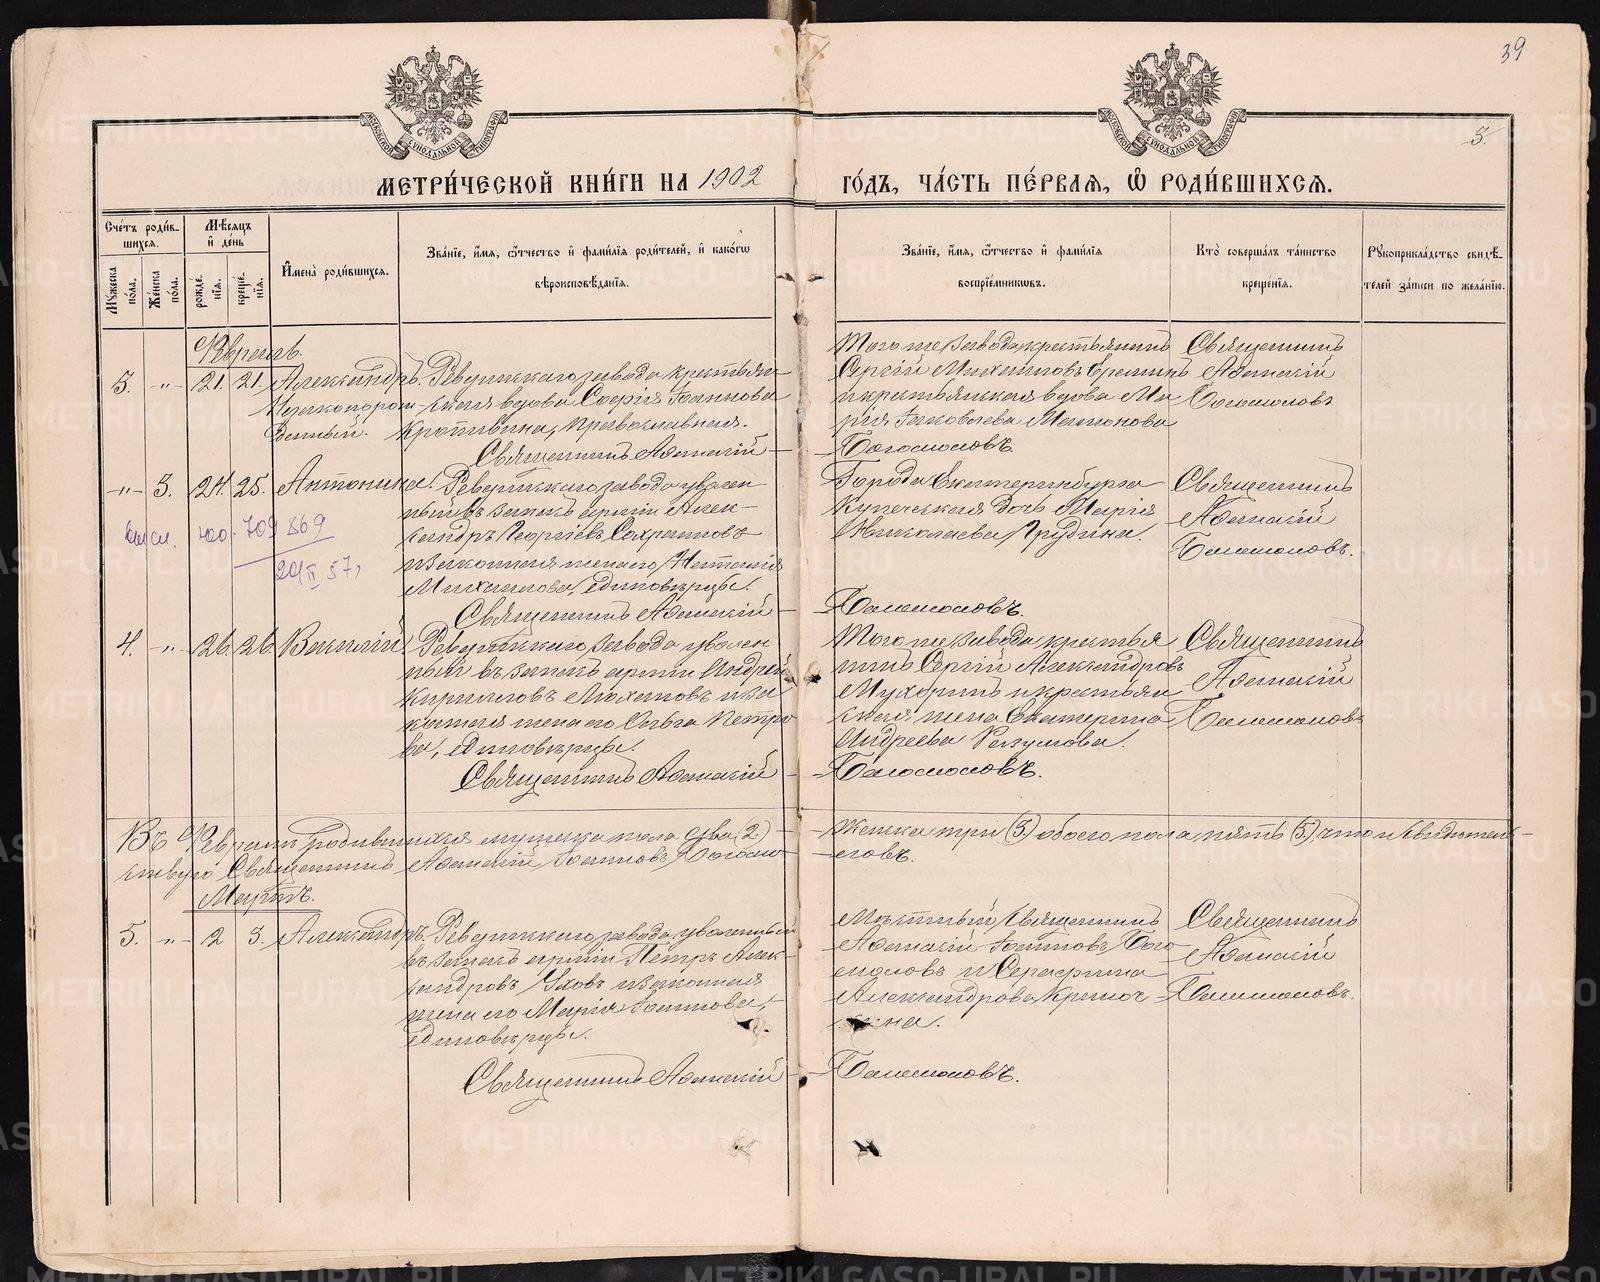 39
5.
МЕТРИ́ЧЕСКОЙ КНИ́ГИ НА 1902 ГО́ДЪ, ЧА́СТЬ ПЕ́РВАЯ, Ѽ РОДИ́ВШИХСЯ.
Сче́тъ роди́в-
шихся.
Мѣ́сяцъ
и҆ де́нь
Мꙋ́жеска
по́ла.
Же́нска
по́ла.
рожде́-
нїя.
креще́-
нїя.
И҆мена̀ роди́вшихся.
Зва́нїе, и҆́мя, ѻ҆́тчество и҆ фами́лїя роди́телей, и҆ како́гѡ
вѣроисповѣ́данїя.
Зва́нїе, и҆́мя, ѻ҆́тчество и҆ фами́лїя
воспрїе́мникѡвъ.
Кто̀ соверша́лъ та́инство
креще́нїя.
Рꙋкоприкла́дство свидѣ́-
телей за́писи по жела́нїю.
Февраль.
3. -"- 21. 21. Александръ
Незаконорож-
денный.
Ревдинскаго завода крестьян-
ская вдова Софія Іоаннова
Кропивина, православная.
Священникъ Афанасій
Того же завода крестьянинъ
Сергій Михаиловъ Ереминъ
и крестьянская вдова Ма
рія Іаковлева Мамонова
Богословъ.
Священникъ
Афанасій
Богословъ
-"- 3. 24. 25. Антонина.
Ревдинскаго завода уволен
ный въ запасъ арміи Алек-
сандръ Георгіевъ Сахранновъ
и законная жена его Наталія
Михаилова, единовѣрцы.
Священникъ Афанасій
Города Екатеринбурга
купеческая дочь Марія
Николаева Грудина.
Богословъ.
Священникъ
Афанасій
Богословъ.
709 869
4. -"- 26. 26. Василій
Ревдинскаго завода уволен
ный въ запасъ арміи Андрей
Кирилловъ и за
конная жена его Ольга Петро
ва, единовѣрцы.
Священникъ Афанасій
Того же завода крестья
нинъ Сергій Александровъ
Мухоринъ и крестьян
ская жена Екатерина
Андреева Разумова.
Богословъ.
Священникъ
Афанасій
Богословъ
Въ Февралѣ родившихся мужеска пола два (2.) - женска три (3.) обоего пола пять (5.), что и свидѣтель-
ствую Священникъ Афанасій Іоанновъ Богосло- -говъ.
Мартъ.
5. -"- 2 3. Александръ.
Ревдинскаго завода уволенный
въ запасъ арміи Петръ Алек-
сандровъ Уховъ и законная
жена его Марія Іоаннова,
единовѣрцы.
Священникъ Афанасій
Мѣстный Священникъ
Афанасій Іоанновъ Бого
словъ и Серафима
Александрова
Богословъ.
Священникъ
Афанасій
Богословъ.